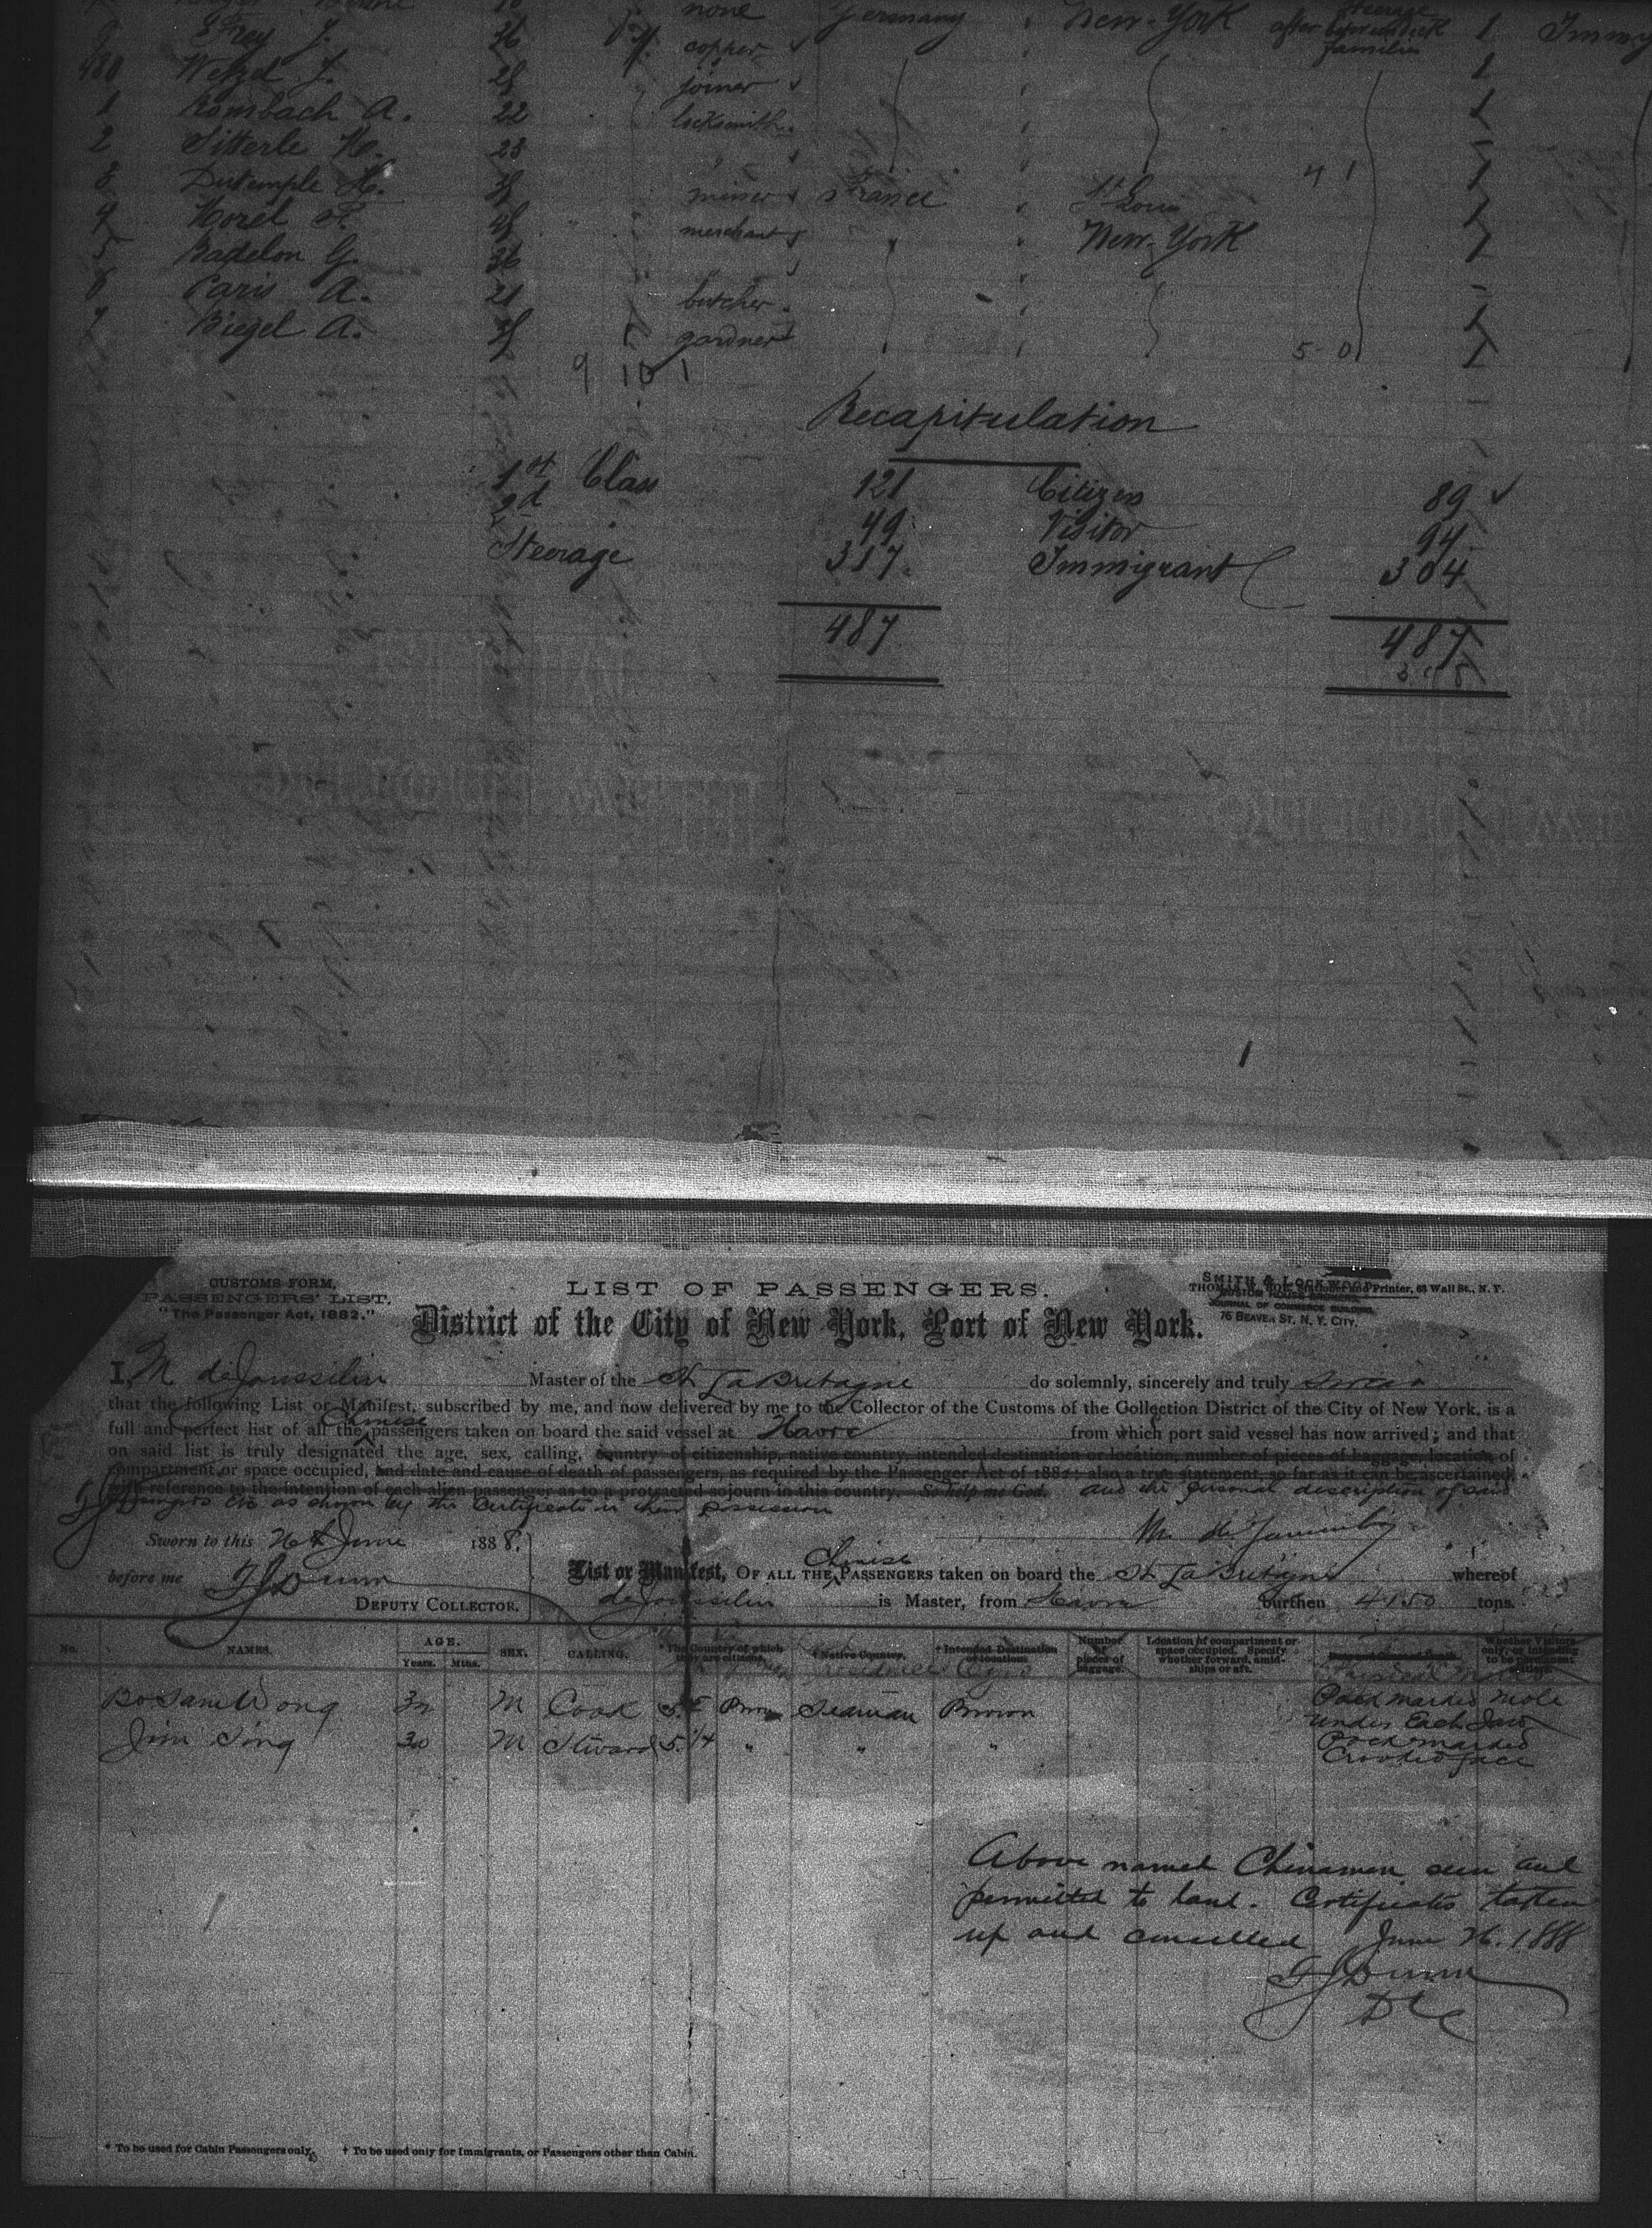 none Germany New-York Steerage
9 Frey J. 36 copper after between deck 1
families
480 Wetzel J. 28 joiner 1
1 Rombach A. 22 locksmith 1
2 Sitterle 23
3 Dutemple H. miner France St Louis 4 1 1
4 Morel 48 merchant New-York 1
5 Badelon G. 36 1
6 Paris A. 21 butcher
7 Biegel A. gardner 5 0 1
9 10 1
Recapitulation
1st Class 121 Citizen 89
2d 49 Visitor 94
Steerage 317. Immigrant 304
487 487
CUSTOMS FORM.
PASSENGERS' LIST.
"The Passenger Act, 1882."
LIST OF PASSENGERS.
SMITH & LOCKWOOD
Stationer and Printer, 63 Wall St., N. Y.
JOURNAL OF COMMERCE BUILDING,
76 BEAVER ST. N. Y. CITY.
District of the City of New York, Port of New York.
I, M de Jousselin Master of the St La Bretagne do solemnly, sincerely and truly swear
that the following List or Manifest, subscribed by me, and now delivered by me to the Collector of the Customs of the Collection District of the City of New York, is a
full and perfect list of all the Chinese passengers taken on board the said vessel at Havre from which port said vessel has now arrived; and that
on said list is truly designated the age, sex, calling, country of citizenship, native country, intended destination or location, number of pieces of baggage, location of
compartment or space occupied, and date and cause of death of passengers, as required by the Passenger Act of 1882; also a true statement, so far as it can be ascertained,
with reference to the intention of each alien passenger as to a protracted sojourn in this country. So help me God. and the personal description of said
passengers as shown by the Certificate in their possession
Sworn to this 26th June 1888.
M. de Jousselin
before me F J Dunn
DEPUTY COLLECTOR.
List or Manifest, OF ALL THE Chinese PASSENGERS taken on board the St La Bretagne whereof
de Jousselin is Master, from Havre burthen 4150 tons.
No. NAMES. AGE. Years. Mths. SEX. CALLING. * The Country of which they are citizens. † Native Country. † Intended Destination or location. Number of pieces of baggage. Location of compartment or space occupied. Specify whether forward, amidships or aft. Date and Cause of Death. Whether Visitors only or intending to be permanent
Bo Sam Wong 32 M Cook Brown Seaman Brown Pock marked mole
under Each Jaw
Jim Sing 30 M Steward 5.1/4 " " " Pock marked
Crooked face
Above named Chinamen seen and
permitted to land. Certificates taken
up and cancelled June 26. 1888
F J Dunn
D C
* To be used for Cabin Passengers only. † To be used only for Immigrants, or Passengers other than Cabin.